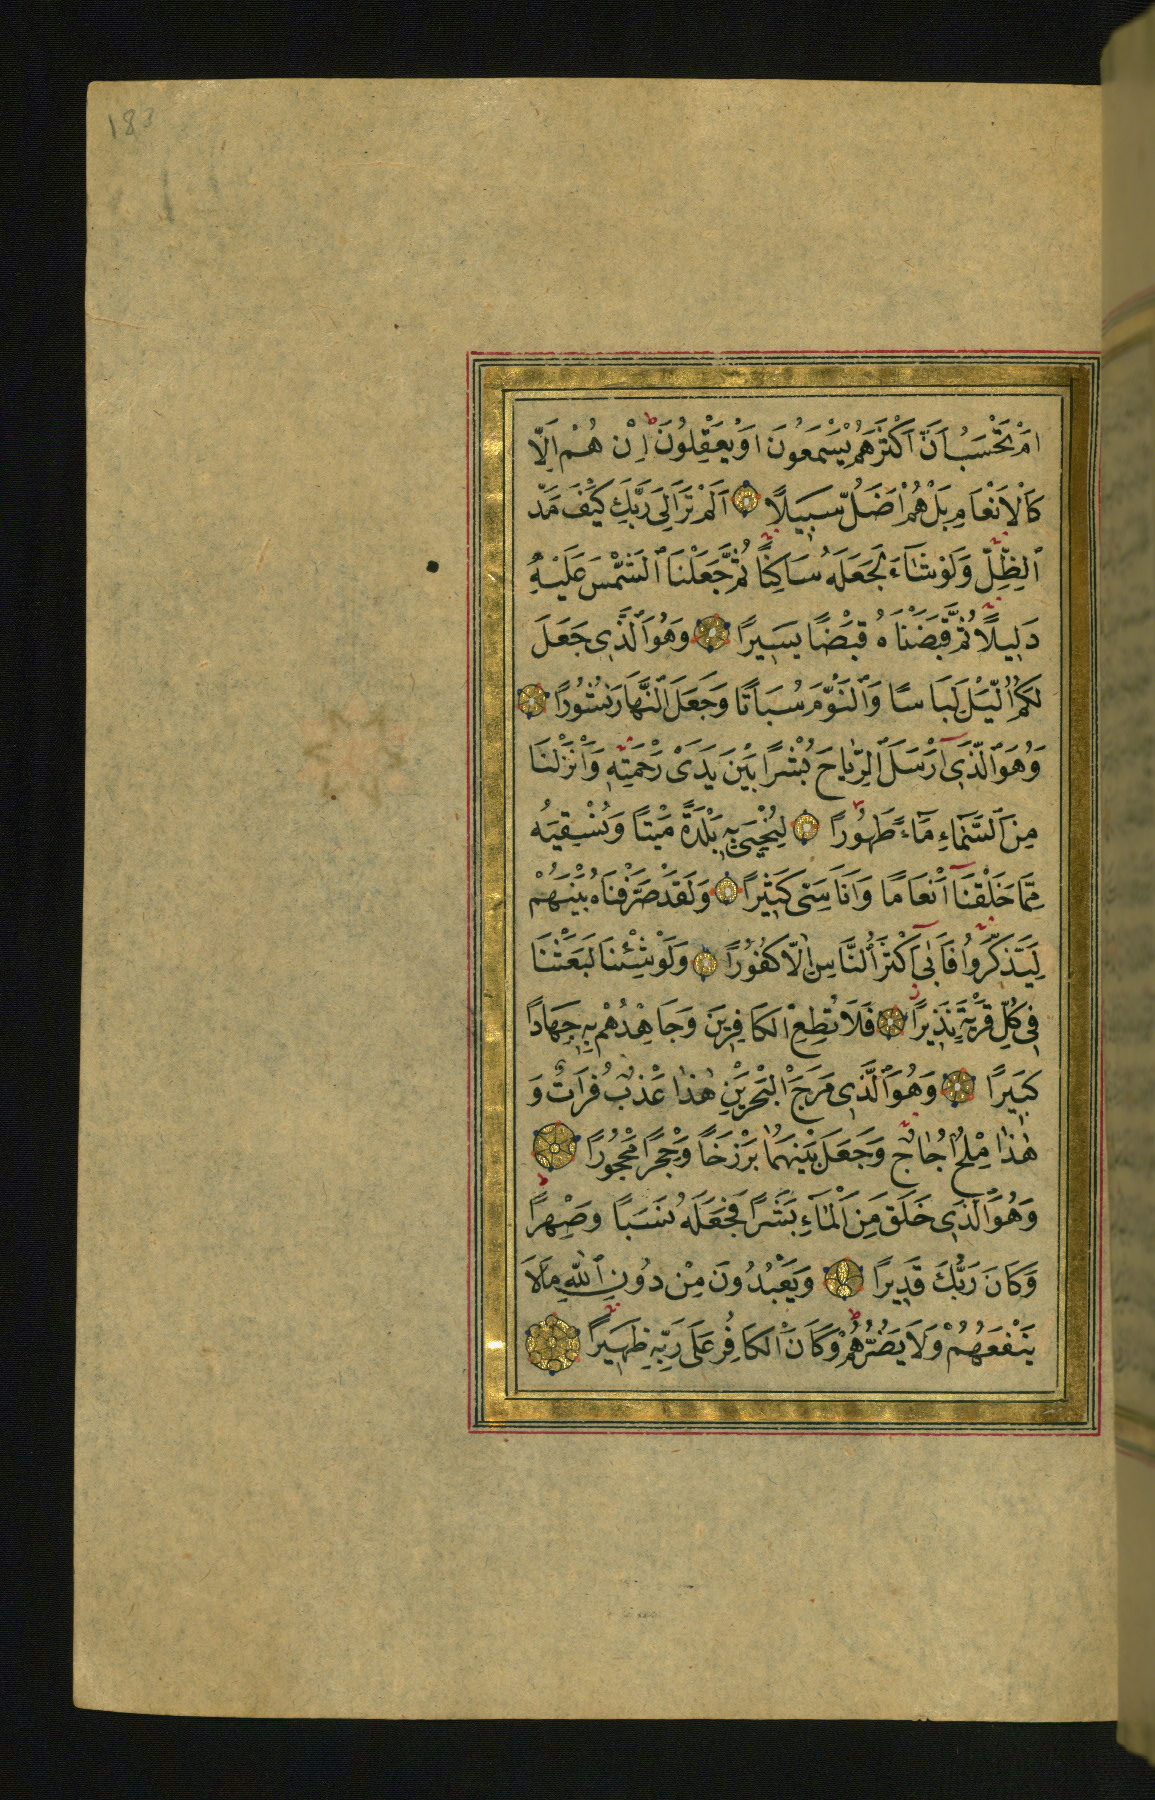 183
اَمْ تَحْسَبُ اَنَّ اَكْثَرَهُمْ يَسْمَعُونَ اَوْ يَعْقِلُونَ اِنْ هُمْ اِلَّا
كَالْاَنْعَامِ بَلْ هُمْ اَضَلُّ سَبِيلًا اَلَمْ تَرَ اِلٰى رَبِّكَ كَيْفَ مَدَّ
الظِّلَّ وَلَوْ شَاءَ لَجَعَلَهُ سَاكِنًا ثُمَّ جَعَلْنَا الشَّمْسَ عَلَيْهِ
دَلِيلًا ثُمَّ قَبَضْنَاهُ قَبْضًا يَسِيرًا وَهُوَ الَّذِى جَعَلَ
لَكُمُ الَّيْلَ لِبَاسًا وَالنَّوْمَ سُبَاتًا وَجَعَلَ النَّهَارَ نُشُورًا
وَهُوَ الَّذِى اَرْسَلَ الرِّيَاحَ بُشْرًا بَيْنَ يَدَىْ رَحْمَتِهِ وَاَنْزَلْنَا
مِنَ السَّمَاءِ مَاءً طَهُورًا لِنُحْيِىَ بِهِ بَلْدَةً مَيْتًا وَنُسْقِيَهُ
مِمَّا خَلَقْنَا اَنْعَامًا وَاَنَاسِىَّ كَثِيرًا وَلَقَدْ صَرَّفْنَاهُ بَيْنَهُمْ
لِيَذَّكَّرُوا فَاَبٰى اَكْثَرُ النَّاسِ اِلَّا كُفُورًا وَلَوْ شِئْنَا لَبَعَثْنَا
فِى كُلِّ قَرْيَةٍ نَذِيرًا فَلَا تُطِعِ الْكَافِرِينَ وَجَاهِدْهُمْ بِهِ جِهَادًا
كَبِيرًا وَهُوَ الَّذِى مَرَجَ الْبَحْرَيْنِ هٰذَا عَذْبٌ فُرَاتٌ وَ
هٰذَا مِلْحٌ اُجَاجٌ وَجَعَلَ بَيْنَهُمَا بَرْزَخًا وَحِجْرًا مَحْجُورًا
وَهُوَ الَّذِى خَلَقَ مِنَ الْمَاءِ بَشَرًا فَجَعَلَهُ نَسَبًا وَصِهْرًا
وَكَانَ رَبُّكَ قَدِيرًا وَيَعْبُدُونَ مِنْ دُونِ اللّٰهِ مَا لَا
يَنْفَعُهُمْ وَلَا يَضُرُّهُمْ وَكَانَ الْكَافِرُ عَلٰى رَبِّهِ ظَهِيرًا